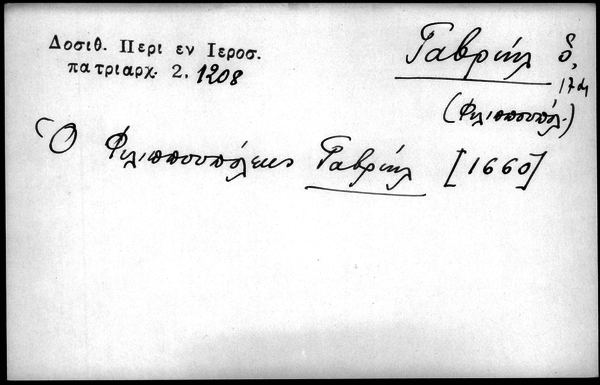 Δοσιθ. Περι εν Ιεροσ.
πατριαρχ. 2. 1208
Γαβριήλ δ,
17αι
(Φιλιππουπόλ.)
Ὁ Φιλιππουπόλεως Γαβριήλ [1660]